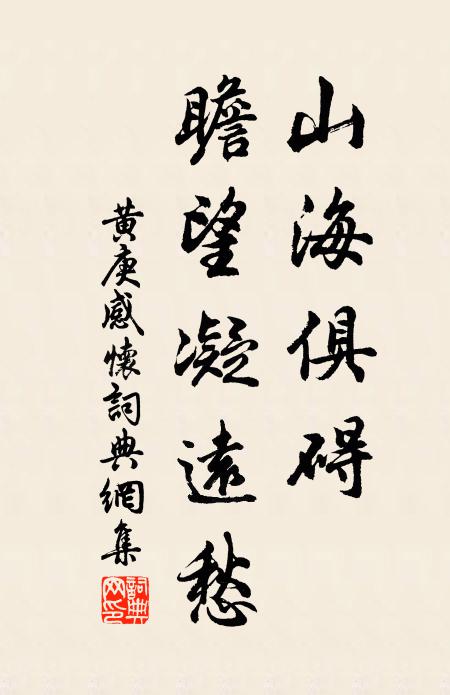 山海俱碍
瞻望凝遠愁
黄庚感懷詞典網集
詞典网印